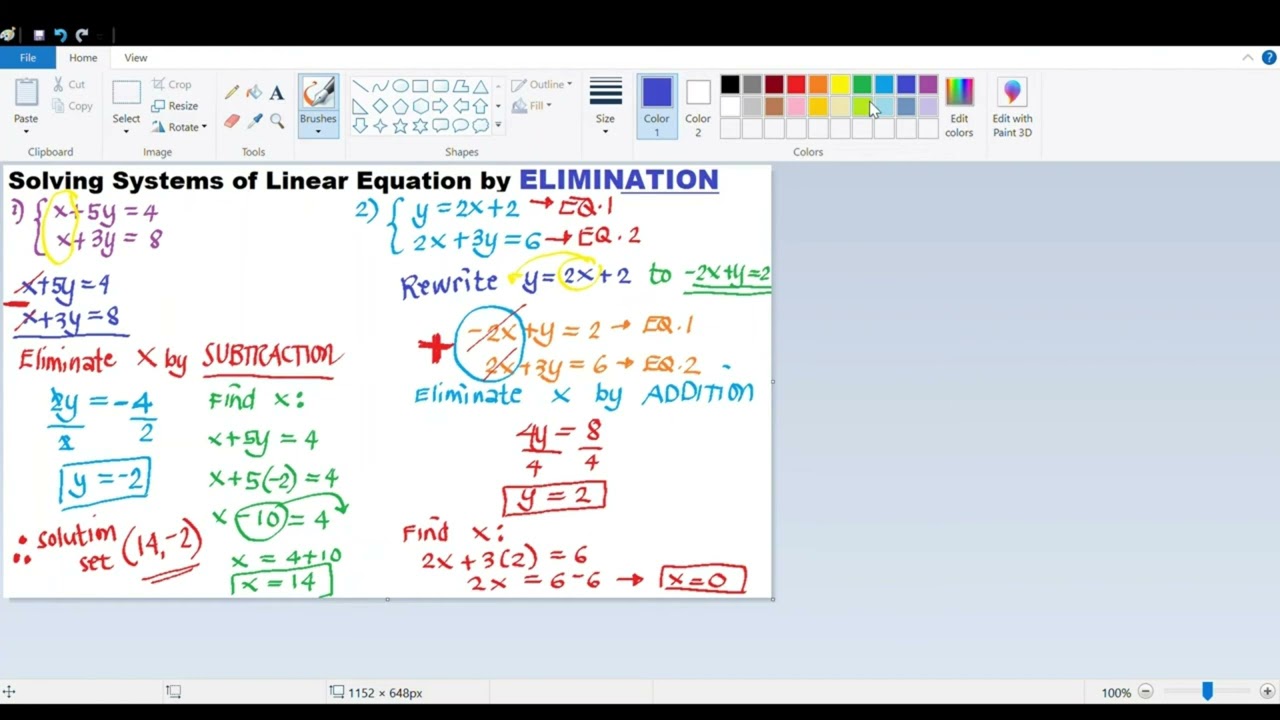 File Home View
Paste
Cut
Copy
Clipboard
Select
Crop
Resize
Rotate
Image
A
Tools
Brushes
Outline
Fill
Shapes
Size
Color 1
Color 2
Edit colors
Colors
Edit with Paint 3D
Solving Systems of Linear Equation by ELIMINATION
1) x+5y=4
x+3y=8
x+5y=4
x+3y=8
Eliminate x by SUBTRACTION
2y = -4
2 2
y=-2
Find x:
x+5y=4
x+5(-2)=4
x-10=4
x=4+10
x=14
∴ solution set (14,-2)
2) y=2x+2 → EQ.1
2x+3y=6 → EQ.2
Rewrite y=2x+2 to -2x+y=2
-2x+y=2 → EQ.1
+ 2x+3y=6 → EQ.2
Eliminate x by ADDITION
4y=8
4 4
y=2
Find x:
2x+3(2)=6
2x=6-6 → x=0
1152 × 648px
100%